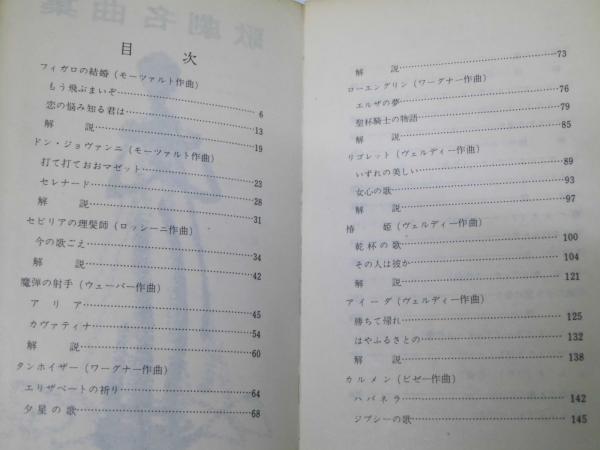 目次
フィガロの結婚（モーツァルト作曲）
もう飛ぶまいぞ……6
恋の悩み知る君は……13
解説……19
ドン・ジョヴァンニ（モーツァルト作曲）
打て打ておおマゼット……23
セレナード……28
解説……31
セビリアの理髪師（ロッシーニ作曲）
今の歌ごえ……34
解説……42
魔弾の射手（ウェーバー作曲）
アリア……45
カヴァティナ……54
解説……60
タンホイザー（ワーグナー作曲）
エリザベートの祈り……64
夕星の歌……68
解説……73
ローエングリン（ワーグナー作曲）
エルザの夢……76
聖杯騎士の物語……79
解説……85
リゴレット（ヴェルディー作曲）
いずれの美しい……89
女心の歌……93
解説……97
椿姫（ヴェルディー作曲）
乾杯の歌……100
その人は彼か……104
解説……121
アイーダ（ヴェルディー作曲）
勝ちて帰れ……125
はやふるさとの……132
解説……138
カルメン（ビゼー作曲）
ハバネラ……142
ジプシーの歌……145